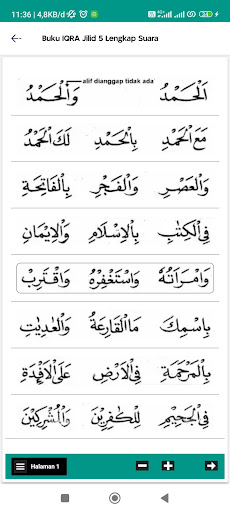 11:36 | 4,8KB/d
Buku IQRA Jilid 5 Lengkap Suara
alif dianggap tidak ada
اَلْحَمْدُ وَالْحَمْدُ
مَعَ الْحَمْدِ بِالْحَمْدِ لَكَ الْحَمْدُ
وَالْعَصْرِ وَالْفَجْرِ بِالْفَاتِحَةِ
فِى الْكِتٰبِ بِالْاِسْلَامِ وَالْاِيْمَانِ
وَامْرَاَتُهٗ وَاسْتَغْفِرْهُ وَاقْتَرِبْ
بِاسْمِكَ مَا الْقَارِعَةُ وَالْعٰدِيٰتِ
بِالْمَرْحَمَةِ فِى الْاَرْضِ عَلَى الْاَفْـِٕدَةِ
فِى الْجَحِيْمِ لِلْكٰفِرِيْنَ وَالْمُشْرِكِيْنَ
Halaman 1